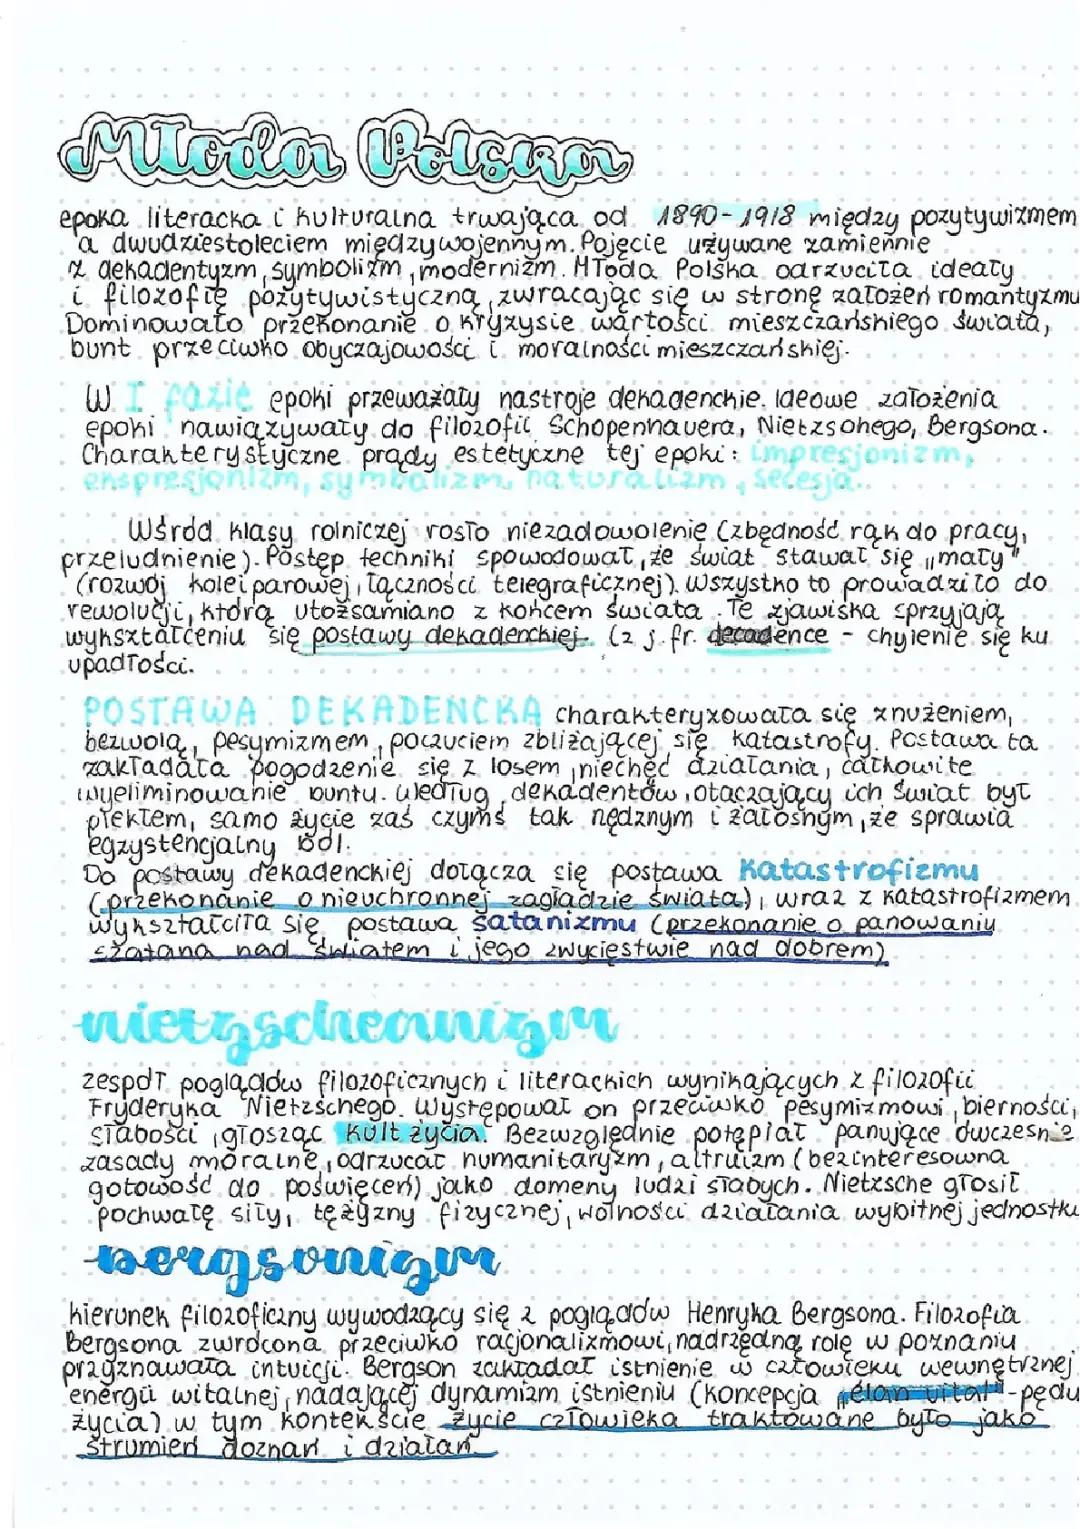 Młoda Polska
epoka literacka i kulturalna trwająca od 1890-1918 między pozytywizmem
a dwudziestoleciem międzywojennym. Pojęcie używane zamiennie
z dekadentyzm, symbolizm, modernizm. Młoda Polska odrzuciła ideały
i filozofię pozytywistyczną, zwracając się w stronę założeń romantyzmu
Dominowało przekonanie o kryzysie wartości mieszczańskiego świata,
bunt przeciwko obyczajowości i moralności mieszczańskiej.
W I fazie epoki przeważały nastroje dekadenckie. Ideowe założenia
epoki nawiązywały do filozofii Schopenhauera, Nietzsohego, Bergsona.
Charakterystyczne prądy estetyczne tej epoki: impresjonizm,
ekspresjonizm, symbolizm, naturalizm, secesja.
Wśród klasy rolniczej rosło niezadowolenie (zbędność rąk do pracy,
przeludnienie). Postęp techniki spowodował, że świat stawał się „mały"
(rozwój kolei parowej, łączności telegraficznej). Wszystko to prowadziło do
rewolucji, którą utożsamiano z końcem świata. Te zjawiska sprzyjają
wykształceniu się postawy dekadenckiej. (z j. fr. decadence - chylenie się ku
upadłości.
POSTAWA DEKADENCKA charakteryzowała się znużeniem,
bezwolą, pesymizmem, poczuciem zbliżającej się katastrofy. Postawa ta
zakładała pogodzenie się z losem, niechęć działania, całkowite
wyeliminowanie buntu. Według dekadentów, otaczający ich świat był
piekłem, samo życie zaś czymś tak nędznym i żałosnym, że sprawia
egzystencjalny ból.
Do postawy dekadenckiej dołącza się postawa katastrofizmu
(przekonanie o nieuchronnej zagładzie świata), wraz z katastrofizmem
wykształciła się postawa satanizmu (przekonanie o panowaniu
szatana nad światem i jego zwycięstwie nad dobrem)
nietzscheanizm
zespół poglądów filozoficznych i literackich wynikających z filozofii
Fryderyka Nietzschego. Występował on przeciwko pesymizmowi, bierności,
słabości, głosząc kult życia. Bezwzględnie potępiał panujące ówcześnie
zasady moralne, odrzucał humanitaryzm, altruizm (bezinteresowna
gotowość do poświęceń) jako domeny ludzi słabych. Nietzsche głosił
pochwałę siły, tężyzny fizycznej, wolności działania wybitnej jednostki
bergsonizm
kierunek filozoficzny wywodzący się z poglądów Henryka Bergsona. Filozofia
Bergsona zwrócona przeciwko racjonalizmowi, nadrzędną rolę w poznaniu
przyznawała intuicji. Bergson zakładał istnienie w człowieku wewnętrznej
energii witalnej, nadającej dynamizm istnieniu (koncepcja „élan vital" - pędu
życia) w tym kontekście życie człowieka traktowane było jako
strumień doznań i działań